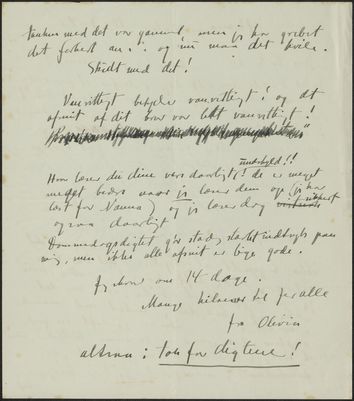 tanken med det var gammel, men jeg har grebet
det forkert an . . og nu maa det hvile.
Skidt med det!
Vanvittigt betyder vanvittigt! og det
afsnit af dit brev var lidt vanvittigt!
undskyld!!
Hvor læser du dine vers daarligt! de er meget
meget bedre naar jeg læser dem op (jeg har
læst for Nanna) og jeg læser dog
ogsaa daarligt!
Dommedagsdigtet gør stadig stærkt indtryk paa
mig, men ikke alle afsnit er lige gode.
Jeg om 14 dage.
Mange hilsener til jer alle
fra Olivia
altsaa: tak for digtene!